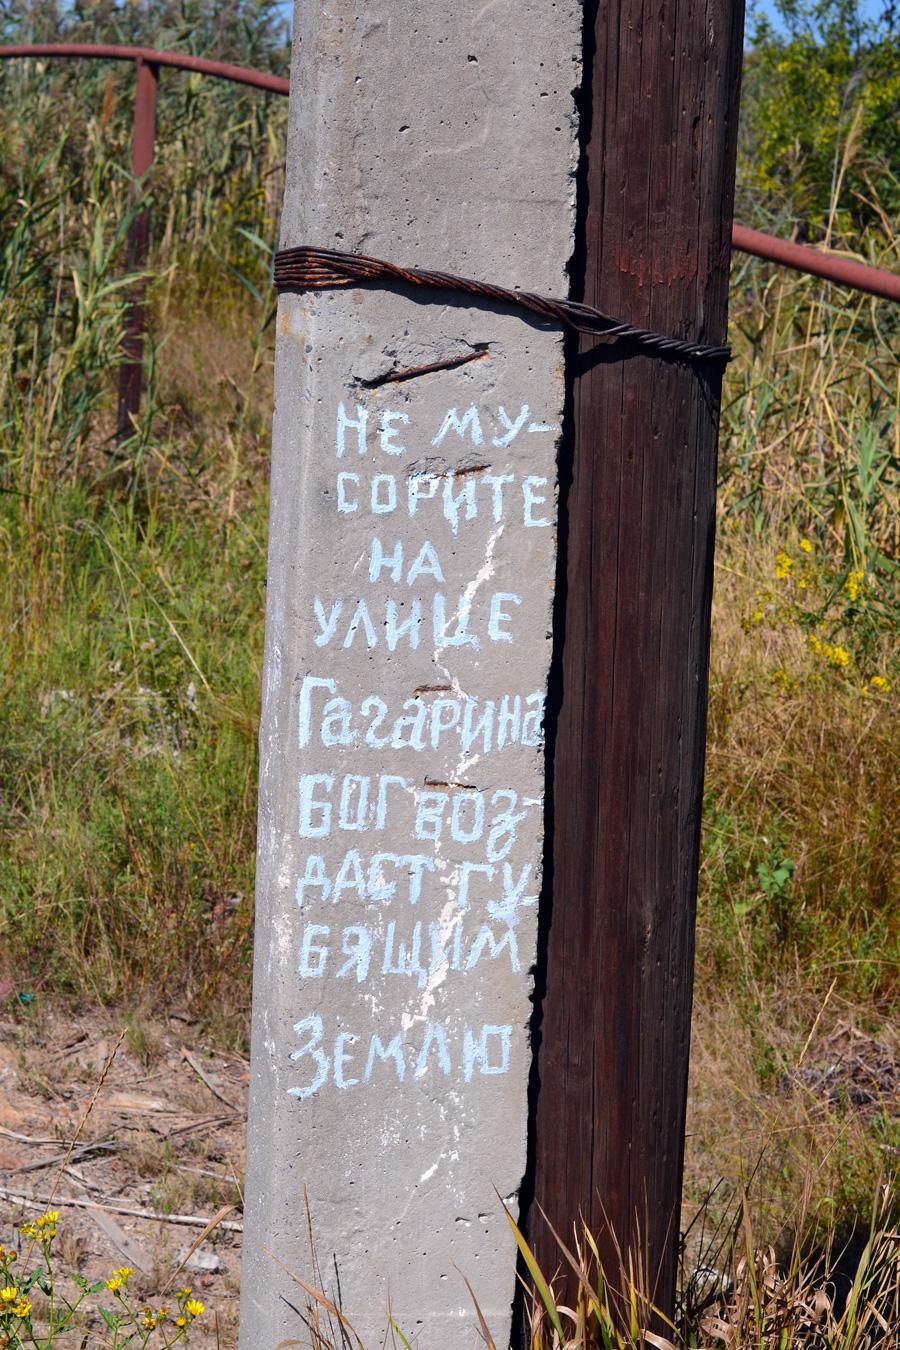 НЕ МУ-
СОРИТЕ
НА
УЛИЦЕ
Гагарина
БОГ ВОЗ-
ДАСТ ГУ-
БЯЩИМ
ЗЕМЛЮ